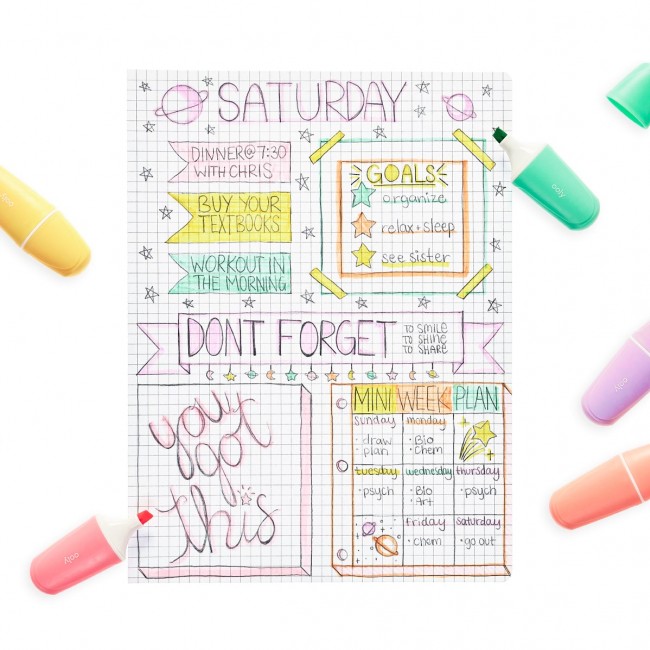 SATURDAY
DINNER@7:30
WITH CHRIS
BUY YOUR
TEXTBOOKS
WORKOUT IN
THE MORNING
GOALS
organize
relax + sleep
see sister
DONT FORGET
TO SMILE
TO SHINE
TO SHARE
you
got
this
MINI WEEK PLAN
sunday
• draw
plan
monday
• Bio
• Chem
tuesday
• psych
wednesday
• Bio
• Art
thursday
• psych
friday
• chem
saturday
• go out
ooly
ooly
ooly
ooly
ooly